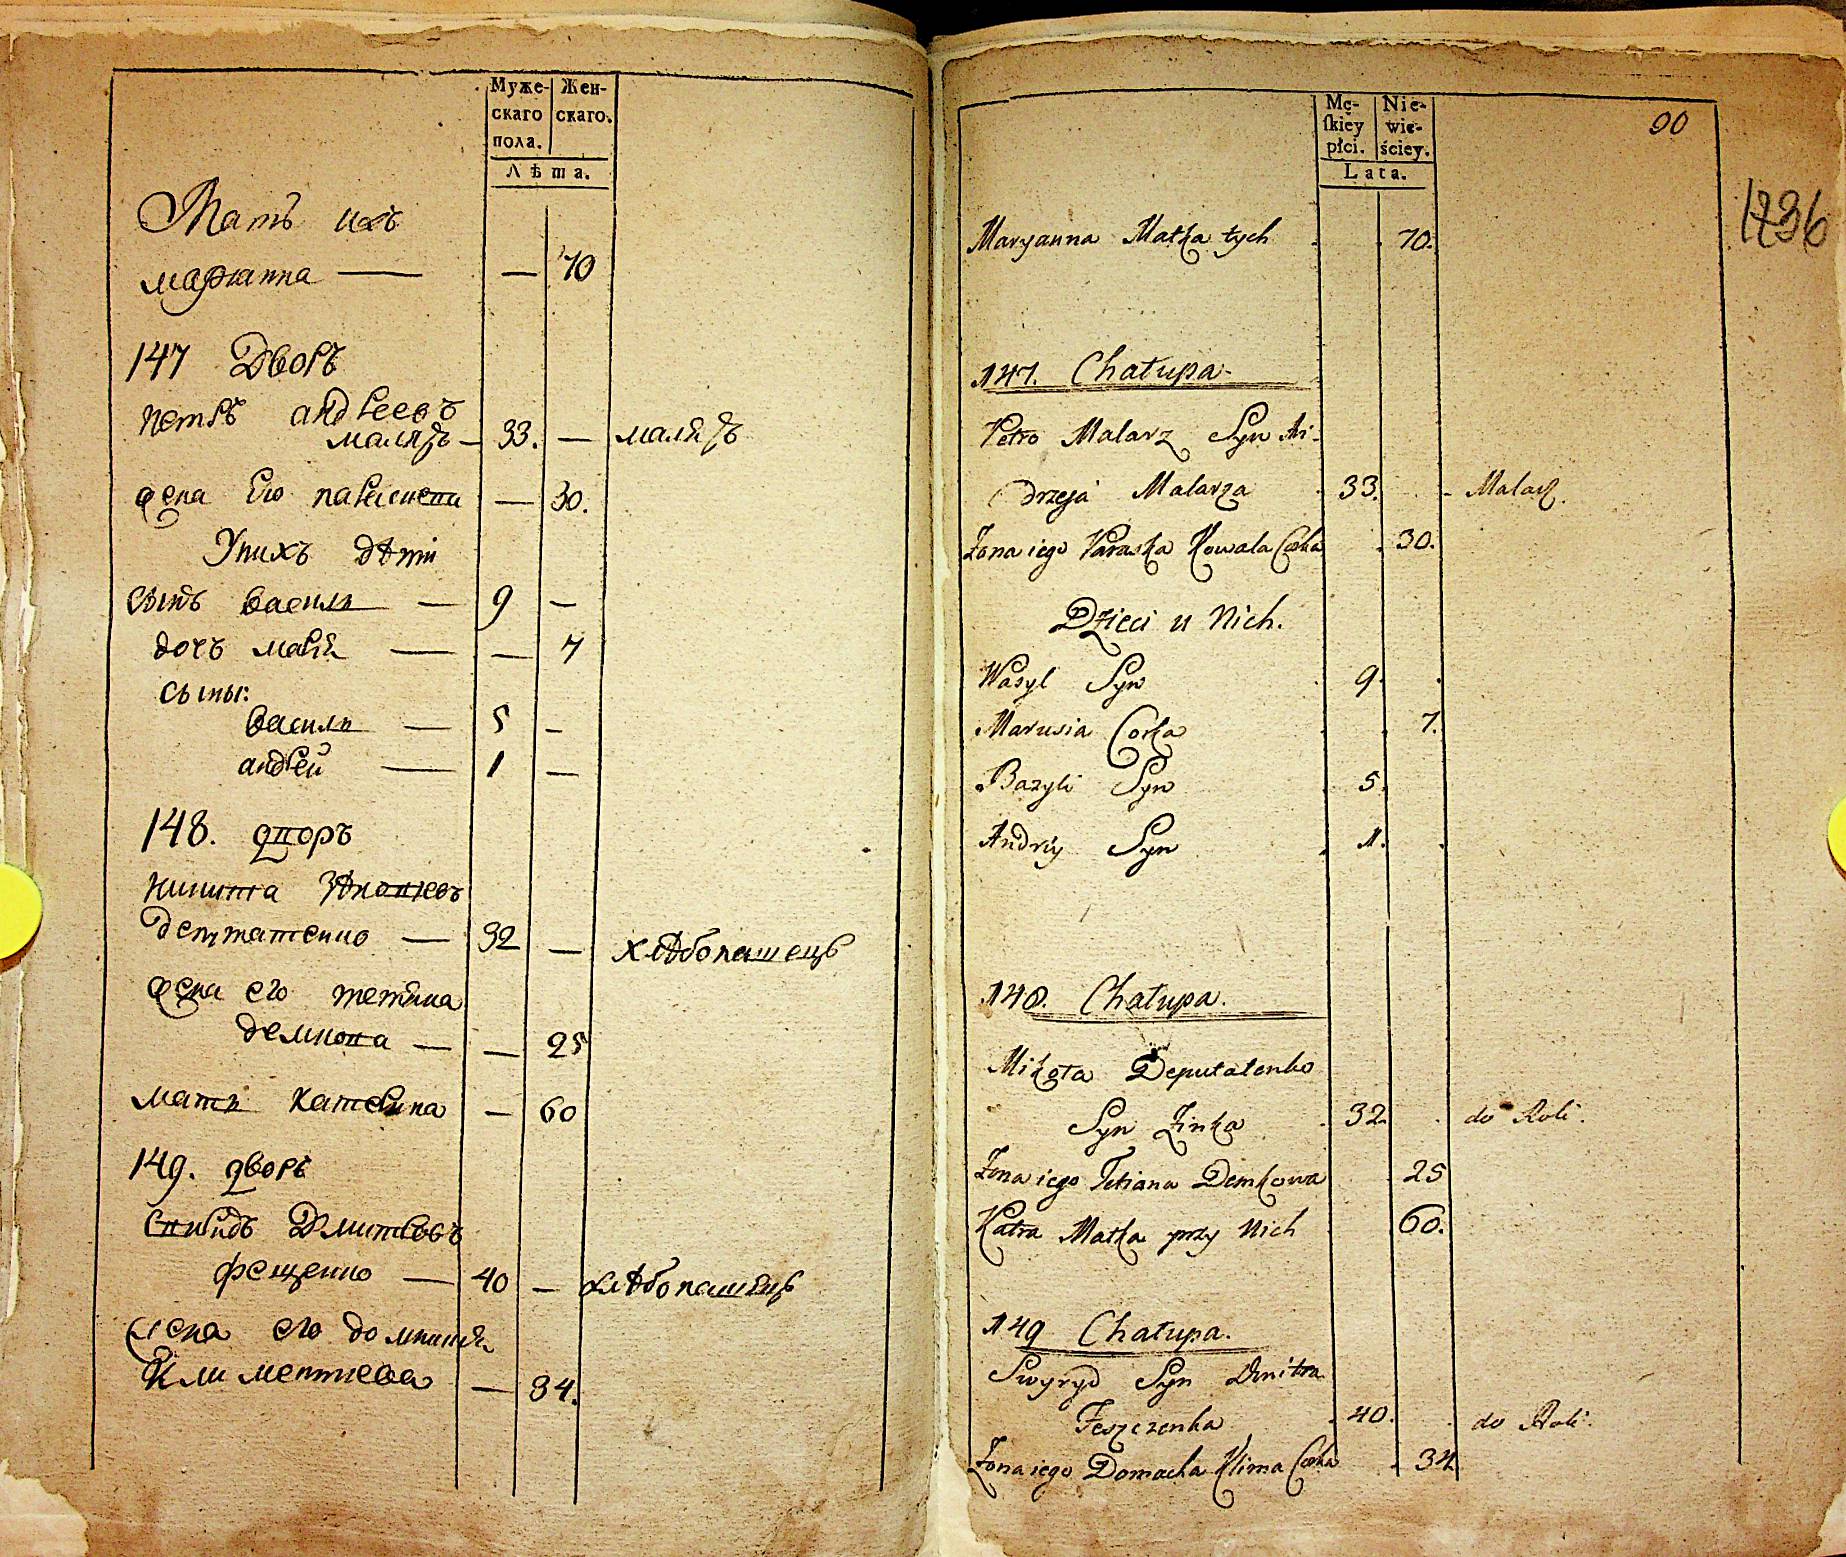 Муже- Жен-
скаго скаго.
пола.
Лѣта.
Мать ихъ
марианна — — 70
147 Дворъ
петръ андреевъ
маляръ — 33. — маляръ
жена Его параскева — 30.
У нихъ дѣти
сынъ василь — 9 —
дочь мария — — 7
сыны:
василь — 5 —
андрей — 1 —
148. дворъ
никита
депутатенко — 32 — хлѣбопашецъ
жена его тетяна
демкова — — 25
мать катерина — 60
149. дворъ
свиридъ Дмитревъ
фещенко — 40 — хлѣбопашецъ
жена его домникия
Климентиева — 34.
Mę- Nie-
skiey wie-
płci. ściey.
Lata.
90
1236
Maryanna Matka tych . . 70.
147. Chałupa.
Petro Malarz Syn An-
drzeja Malarza . 33. . Malarz.
Żona iego Paraska Kowala Corka . 30.
Dzieci u Nich.
Wasyl Syn . 9. .
Marusia Corka . . 7.
Bazyli Syn 5.
Andriy Syn . 1. .
148. Chałupa.
Mikoła Deputatenko
Syn Zinka . 32. . do Roli.
Żona iego Tetiana Demkowa . 25
Katra Matka przy Nich . 60.
149 Chałupa.
Swyryd Syn Dmitra
Feszczenka . 40. . do Roli.
Żona iego Domacha Klima Corka . 34